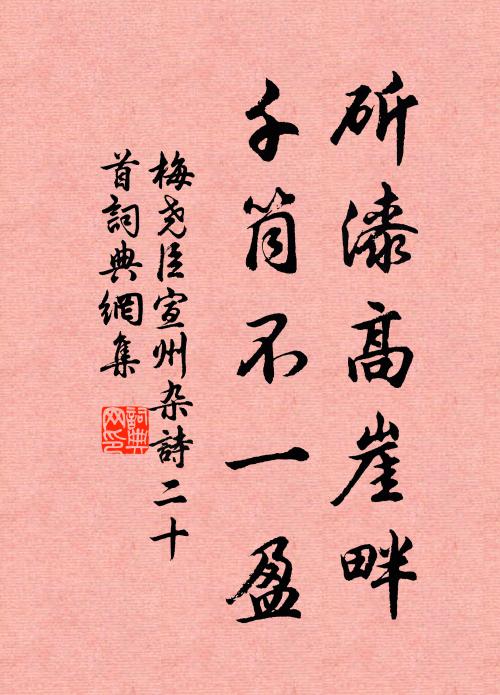 斫漆高崖畔
千筒不一盈
梅尧臣宣州杂詩二十
首詞典網集
詞典
网印